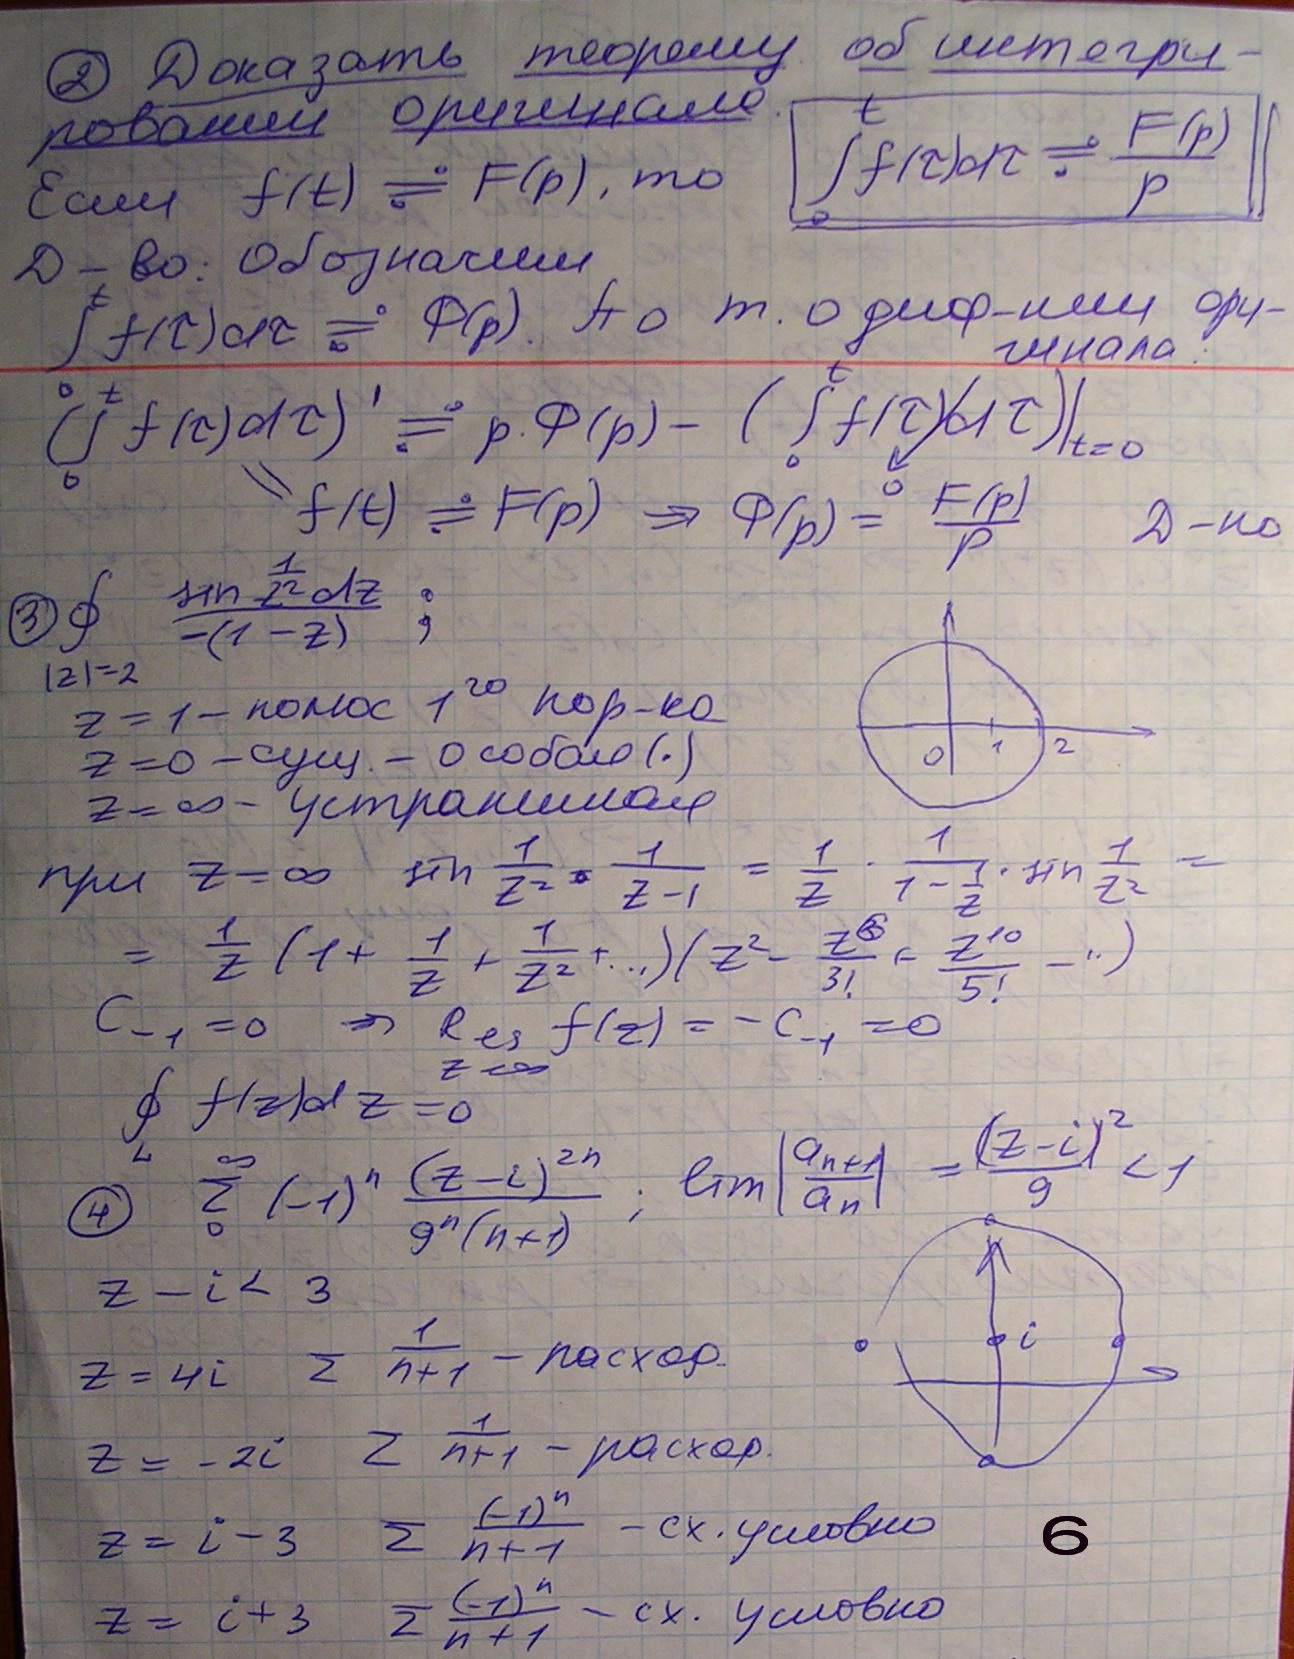 ② Доказать теорему об интегри-
ровании оригинала.
Если f(t) ≓ F(p), то ∫₀ᵗ f(τ)dτ ≓ F(p)/p
Д-во: Обозначим
∫₀ᵗ f(τ)dτ ≓ Φ(p). По т. о диф-нии ори-
гинала:
(∫₀ᵗ f(τ)dτ)' ≓ p·Φ(p) - (∫₀ᵗ f(τ)dτ)|ₜ₌₀
0
f(t) ≓ F(p) ⇒ Φ(p) = F(p)/p Д-но
③ ∮ sin 1/z² dz / -(1-z) ;
|z|=2
z=1 - полюс 1го пор-ка
z=0 - сущ. - особая (·)
z=∞ - устранимая
0 1 2
при z=∞ sin 1/z² · 1/(z-1) = 1/z · 1/(1-1/z) · sin 1/z² =
= 1/z (1 + 1/z + 1/z² + ...)(z² - z⁶/3! + z¹⁰/5! - ..)
C₋₁ = 0 ⇒ Res f(z) = -C₋₁ = 0
z=∞
∮ f(z)dz = 0
L
④ ∑₀^∞ (-1)ⁿ (z-i)²ⁿ / 9ⁿ(n+1) ; lim |aₙ₊₁/aₙ| = (z-i)²/9 < 1
z - i < 3
i
z = 4i ∑ 1/(n+1) - расход.
z = -2i ∑ 1/(n+1) - расход.
z = i-3 ∑ (-1)ⁿ/(n+1) - сх. условно
6
z = i+3 ∑ (-1)ⁿ/(n+1) - сх. условно